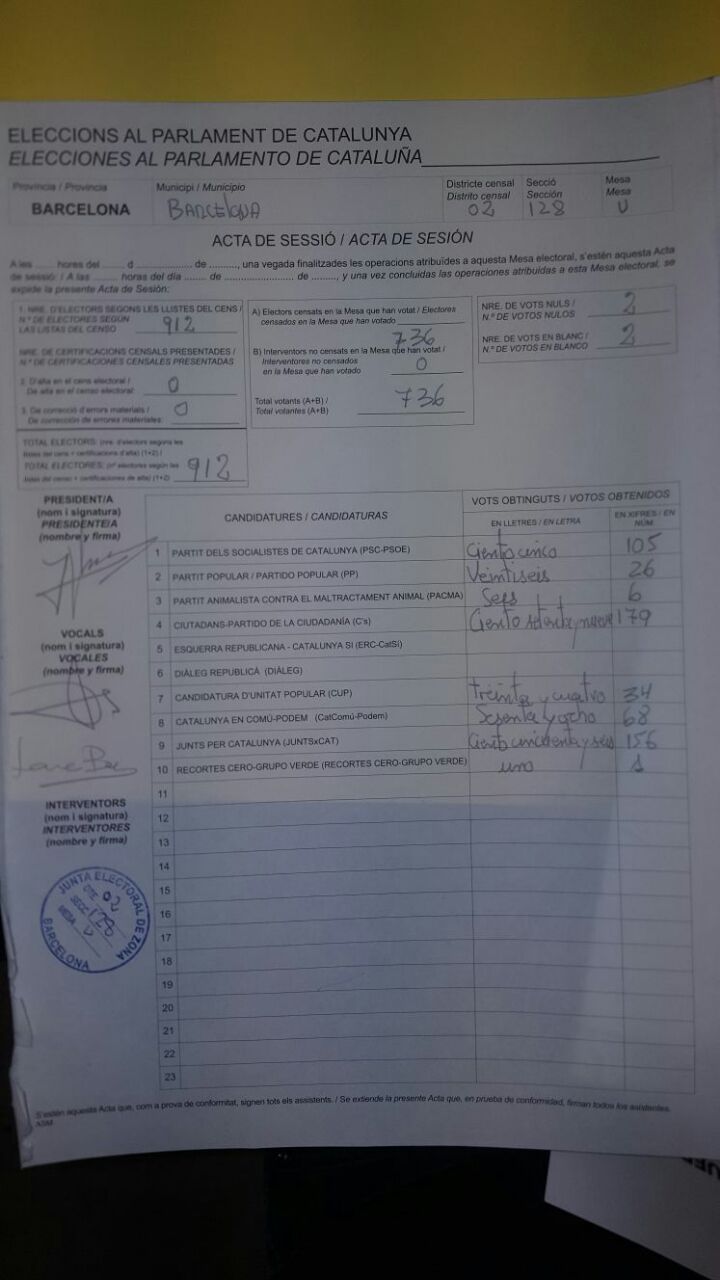 ELECCIONS AL PARLAMENT DE CATALUNYA
ELECCIONES AL PARLAMENTO DE CATALUÑA
Província / Provincia
BARCELONA
Municipi / Municipio
BARCELONA
Districte censal
Distrito censal
02
Secció
Sección
128
Mesa
Mesa
U
ACTA DE SESSIÓ / ACTA DE SESIÓN
A les ........ hores del ........ d ................... de .........., una vegada finalitzades les operacions atribuïdes a aquesta Mesa electoral, s'estén aquesta Acta
de sessió: / A las ........ horas del día ........ de ........................ de ........, y una vez concluidas las operaciones atribuidas a esta Mesa electoral, se
expide la presente Acta de Sesión:
1. NRE. D'ELECTORS SEGONS LES LLISTES DEL CENS /
N.º DE ELECTORES SEGÚN
LAS LISTAS DEL CENSO 912
NRE. DE CERTIFICACIONS CENSALS PRESENTADES /
N.º DE CERTIFICACIONES CENSALES PRESENTADAS
2. D'alta en el cens electoral /
De alta en el censo electoral: 0
3. De correcció d'errors materials /
De corrección de errores materiales: 0
TOTAL ELECTORS: (nre. d'electors segons les
llistes del cens + certificacions d'alta) (1+2) /
TOTAL ELECTORES: (nº electores según las
listas del censo + certificaciones de alta) (1+2) 912
A) Electors censats en la Mesa que han votat / Electores
censados en la Mesa que han votado
736
B) Interventors no censats en la Mesa que han votat /
Interventores no censados
en la Mesa que han votado 0
Total votants (A+B) /
Total votantes (A+B) 736
NRE. DE VOTS NULS /
N.º DE VOTOS NULOS 2
NRE. DE VOTS EN BLANC /
N.º DE VOTOS EN BLANCO 2
PRESIDENT/A
(nom i signatura)
PRESIDENTE/A
(nombre y firma)
VOCALS
(nom i signatura)
VOCALES
(nombre y firma)
INTERVENTORS
(nom i signatura)
INTERVENTORES
(nombre y firma)
JUNTA ELECTORAL DE ZONA
DTE. 02
SECC. 128
MESA U
BARCELONA
CANDIDATURES / CANDIDATURAS
VOTS OBTINGUTS / VOTOS OBTENIDOS
EN LLETRES / EN LETRA
EN XIFRES / EN NÚM.
1 PARTIT DELS SOCIALISTES DE CATALUNYA (PSC-PSOE) Ciento cinco 105
2 PARTIT POPULAR / PARTIDO POPULAR (PP) Veintiseis 26
3 PARTIT ANIMALISTA CONTRA EL MALTRACTAMENT ANIMAL (PACMA) Seis 6
4 CIUTADANS-PARTIDO DE LA CIUDADANÍA (C's) Ciento setenta y nueve 179
5 ESQUERRA REPUBLICANA - CATALUNYA SI (ERC-CatSí)
6 DIÀLEG REPUBLICÀ (DIÀLEG)
7 CANDIDATURA D'UNITAT POPULAR (CUP) treinta y cuatro 34
8 CATALUNYA EN COMÚ-PODEM (CatComú-Podem) Sesenta y ocho 68
9 JUNTS PER CATALUNYA (JUNTSxCAT) Ciento cincuenta y seis 156
10 RECORTES CERO-GRUPO VERDE (RECORTES CERO-GRUPO VERDE) uno 1
11
12
13
14
15
16
17
18
19
20
21
22
23
S'estén aquesta Acta que, com a prova de conformitat, signen tots els assistents. / Se extiende la presente Acta que, en prueba de conformidad, firman todos los asistentes.